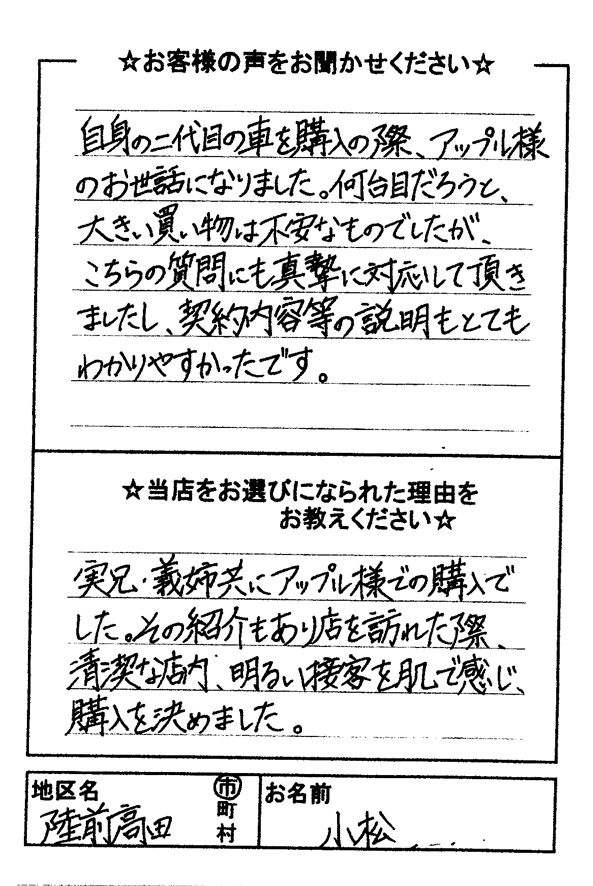 ☆お客様の声をお聞かせください☆
自身の二代目の車を購入の際、アップル様
のお世話になりました。何台目だろうと、
大きい買い物は不安なものでしたが、
こちらの質問にも真摯に対応して頂き
ましたし、契約内容等の説明もとても
わかりやすかったです。
☆当店をお選びになられた理由を
お教えください☆
実兄・義姉共にアップル様での購入で
した。その紹介もあり店を訪れた際、
清潔な店内、明るい接客を肌で感じ、
購入を決めました。
地区名
陸前高田
市
町
村
お名前
小松